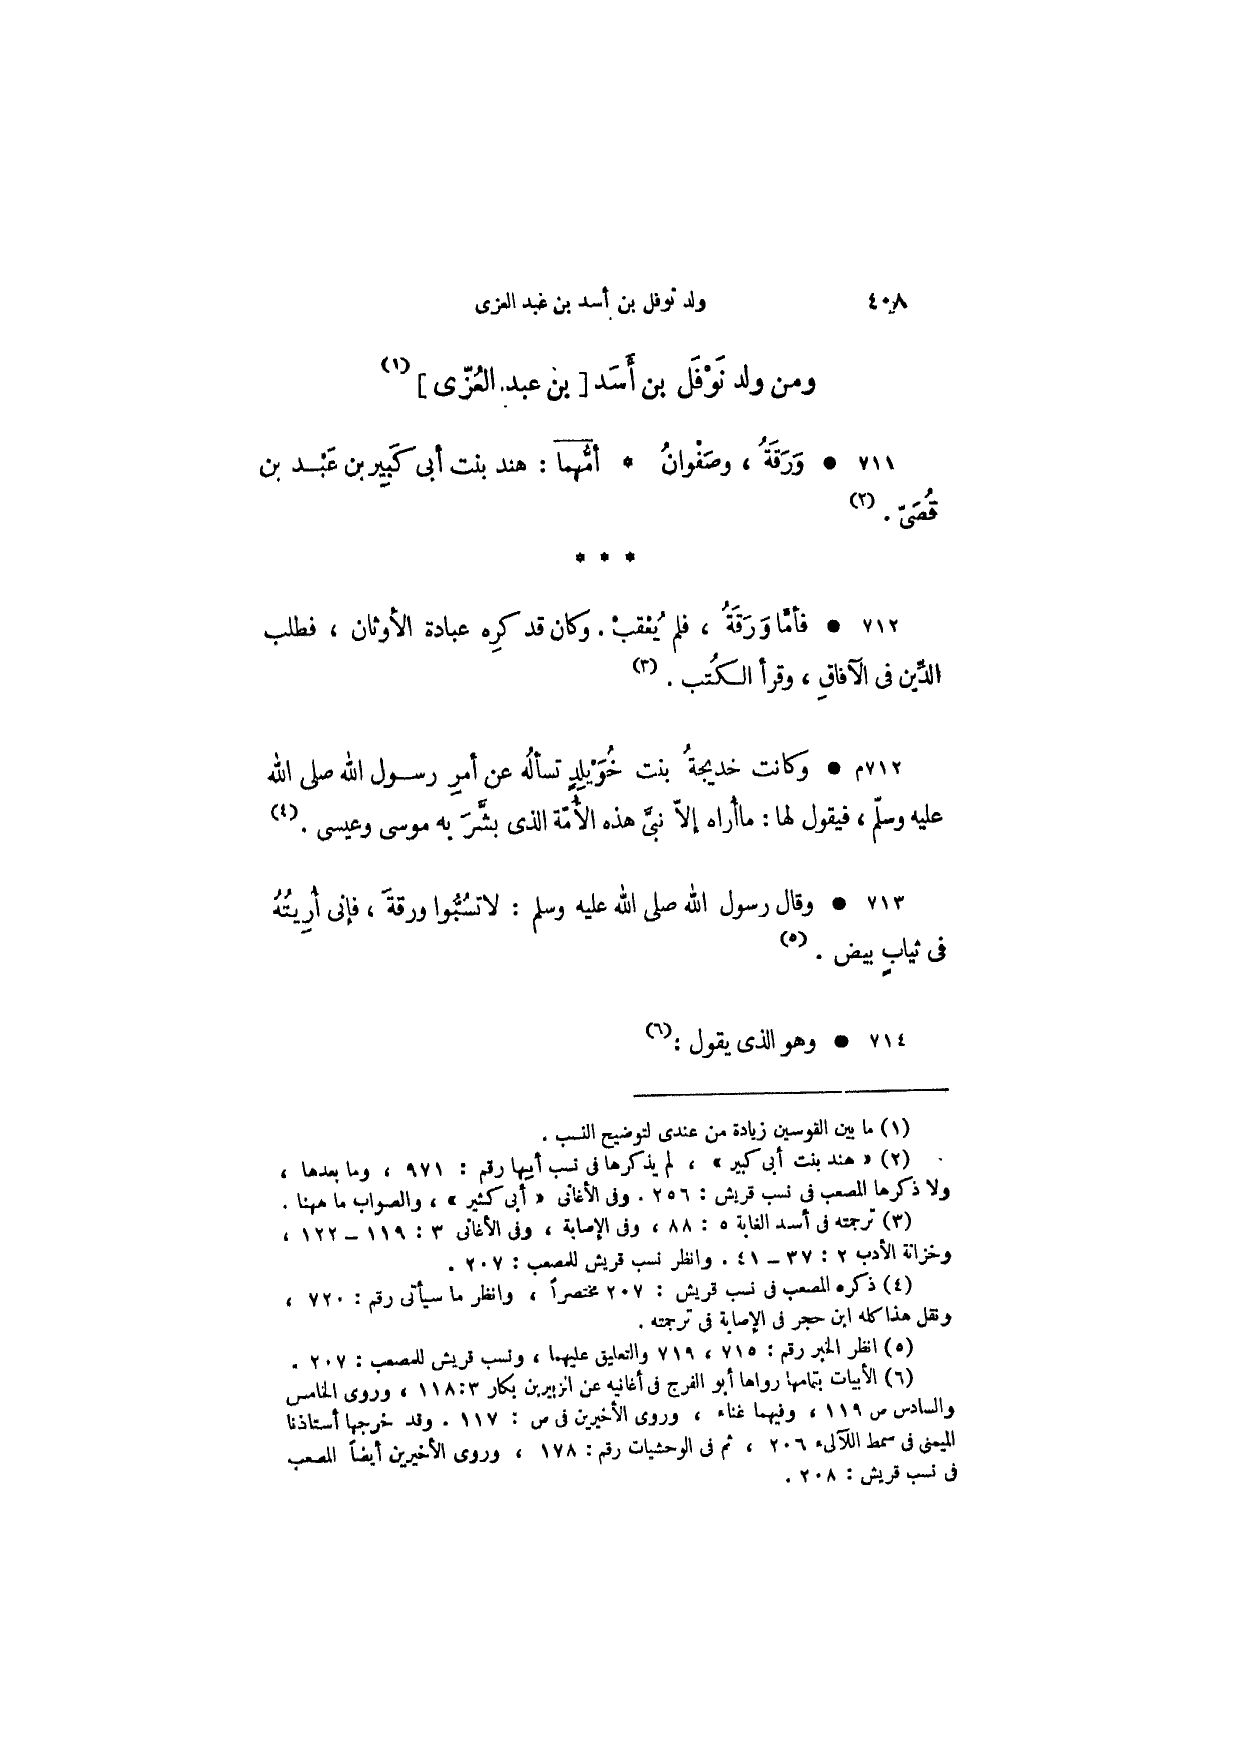 ٤٠٨ ولد نوفل بن أسد بن عبد العزى
ومن ولد نَوْفَل بن أَسَد [ بن عبد العُزّى ] (١)
٧١١ ● وَرَقَةُ ، وصَفْوانُ * أمُّهما : هند بنت أبى كَبِير بن عَبْد بن
قُصَىّ . (٢)
* * *
٧١٢ ● فأمَّا وَرَقَةُ ، فلم يُعْقبْ . وكان قد كرِه عبادة الأوثان ، فطلب
الدِّين فى الآفاقِ ، وقرأ الكُتب . (٣)
٧١٢م ● وكانت خديجةُ بنت خُوَيْلِدٍ تسألُه عن أمرِ رسول الله صلى الله
عليه وسلّم ، فيقول لها : ماأُراه إلاّ نبىَّ هذه الأُمّة الذى بشَّرَ به موسى وعيسى . (٤)
٧١٣ ● وقال رسول الله صلى الله عليه وسلم : لاتسُبُّوا ورقةَ ، فإنى أُرِيتُهُ
فى ثيابٍ بيض . (٥)
٧١٤ ● وهو الذى يقول : (٦)
(١) ما بين القوسين زيادة من عندى لتوضيح النسب .
(٢) « هند بنت أبى كبير » ، لم يذكرها فى نسب أبيها رقم : ٩٧١ ، وما بعدها ،
ولا ذكرها المصعب فى نسب قريش : ٢٥٦ . وفى الأغانى « أبى كثير » ، والصواب ما ههنا .
(٣) ترجمته فى أسد الغابة ٥ : ٨٨ ، وفى الإصابة ، وفى الأغانى ٣ : ١١٩ – ١٢٢ ،
وخزانة الأدب ٢ : ٣٧ – ٤١ . وانظر نسب قريش للمصعب : ٢٠٧ .
(٤) ذكره المصعب فى نسب قريش : ٢٠٧ مختصراً ، وانظر ما سيأتى رقم : ٧٢٠ ،
ونقل هذا كله ابن حجر فى الإصابة فى ترجمته .
(٥) انظر الخبر رقم : ٧١٥ ، ٧١٩ والتعليق عليهما ، ونسب قريش للمصعب : ٢٠٧ .
(٦) الأبيات بتمامها رواها أبو الفرج فى أغانيه عن الزبير بن بكار ٣ : ١١٨ ، وروى الخامس
والسادس ص ١١٩ ، وفيهما غناء ، وروى الأخيرين فى ص : ١١٧ . وقد خرجها أستاذنا
الميمنى فى سمط اللآلىء ٢٠٦ ، ثم فى الوحشيات رقم : ١٧٨ ، وروى الأخيرين أيضاً المصعب
فى نسب قريش : ٢٠٨ .